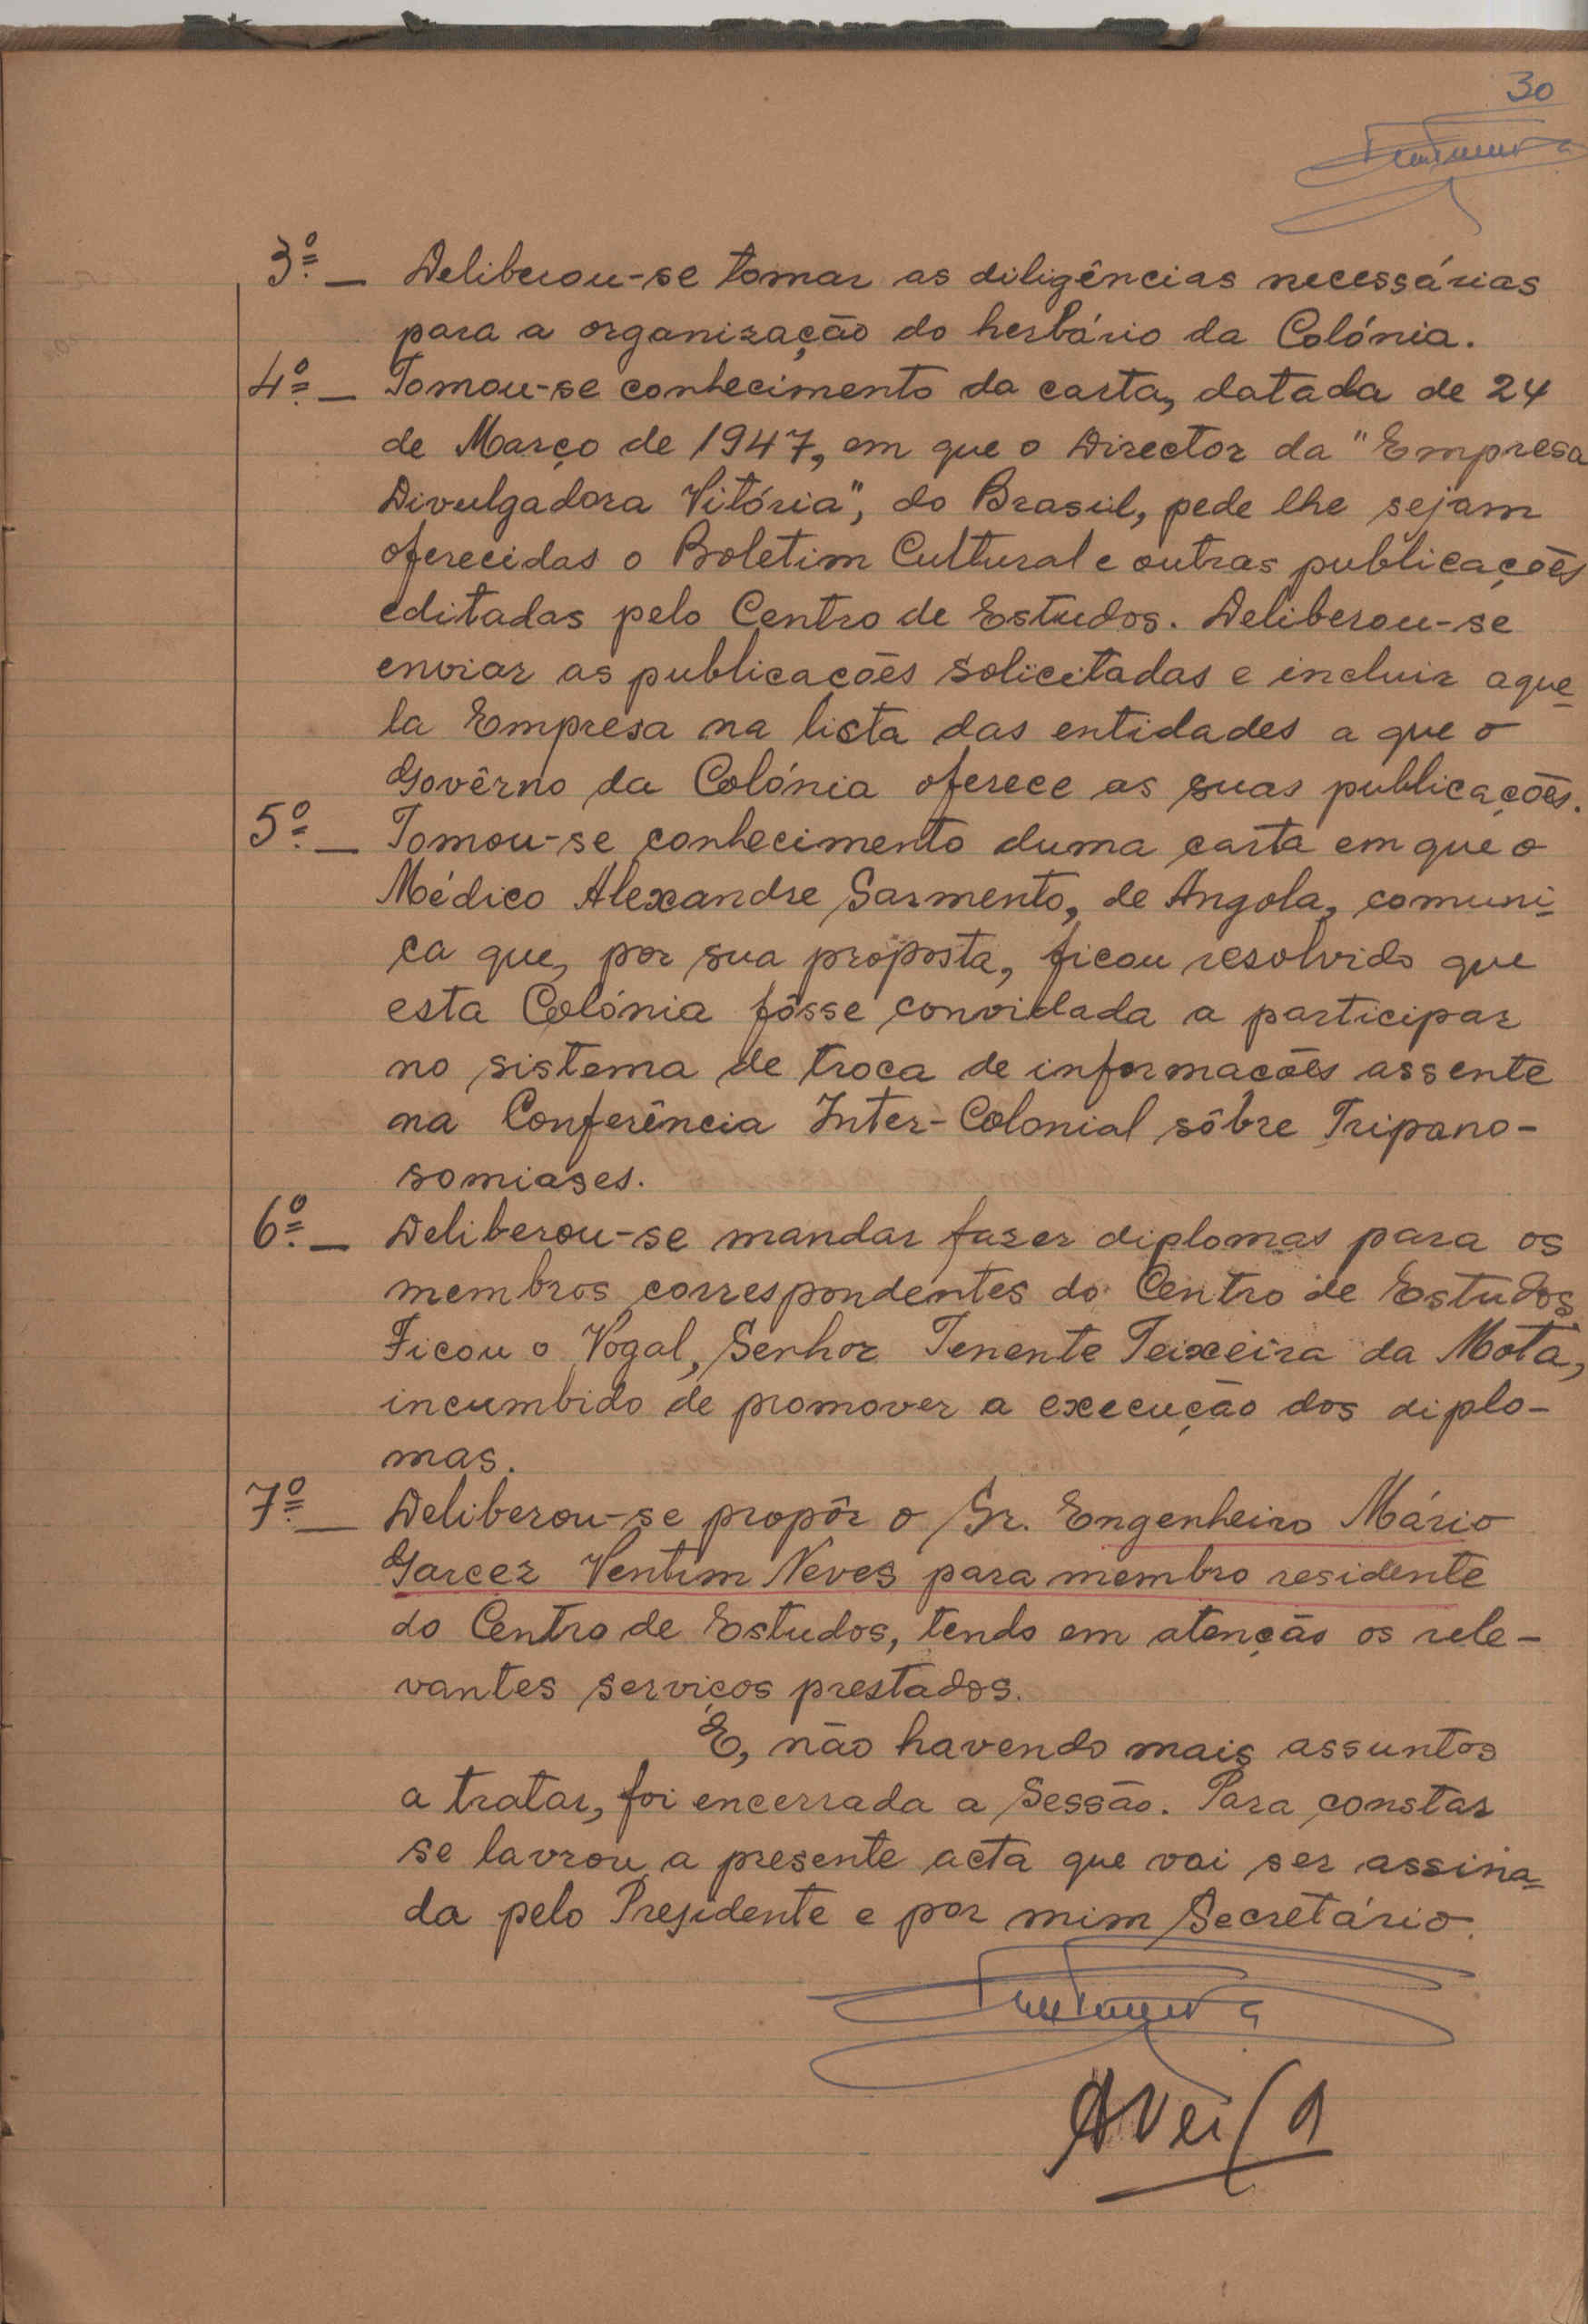 30
3º — Deliberou-se tomar as diligências necessárias
para a organização do herbário da Colónia.
4º — Tomou-se conhecimento da carta, datada de 24
de Março de 1947, em que o Director da "Empresa
Divulgadora Vitória", do Brasil, pede lhe sejam
oferecidas o Boletim Cultural e outras publicações
editadas pelo Centro de Estudos. Deliberou-se
enviar as publicações solicitadas e incluir aque=
la Empresa na lista das entidades a que o
Govêrno da Colónia oferece as suas publicações.
5º — Tomou-se conhecimento duma carta em que o
Médico Alexandre Sarmento, de Angola, comuni=
ca que, por sua proposta, ficou resolvido que
esta Colónia fôsse convidada a participar
no sistema de troca de informações assente
na Conferência Inter-Colonial sôbre Tripano-
somiases.
6º — Deliberou-se mandar fazer diplomas para os
membros correspondentes do Centro de Estudos.
Ficou o Vogal, Senhor Tenente Teixeira da Mota,
incumbido de promover a execução dos diplo-
mas.
7º — Deliberou-se propôr o Sr. Engenheiro Mário
Garcez Ventim Neves para membro residente
do Centro de Estudos, tendo em atenção os rele-
vantes serviços prestados.
E, não havendo mais assuntos
a tratar, foi encerrada a Sessão. Para constar
se lavrou a presente acta que vai ser assina=
da pelo Presidente e por mim Secretário.